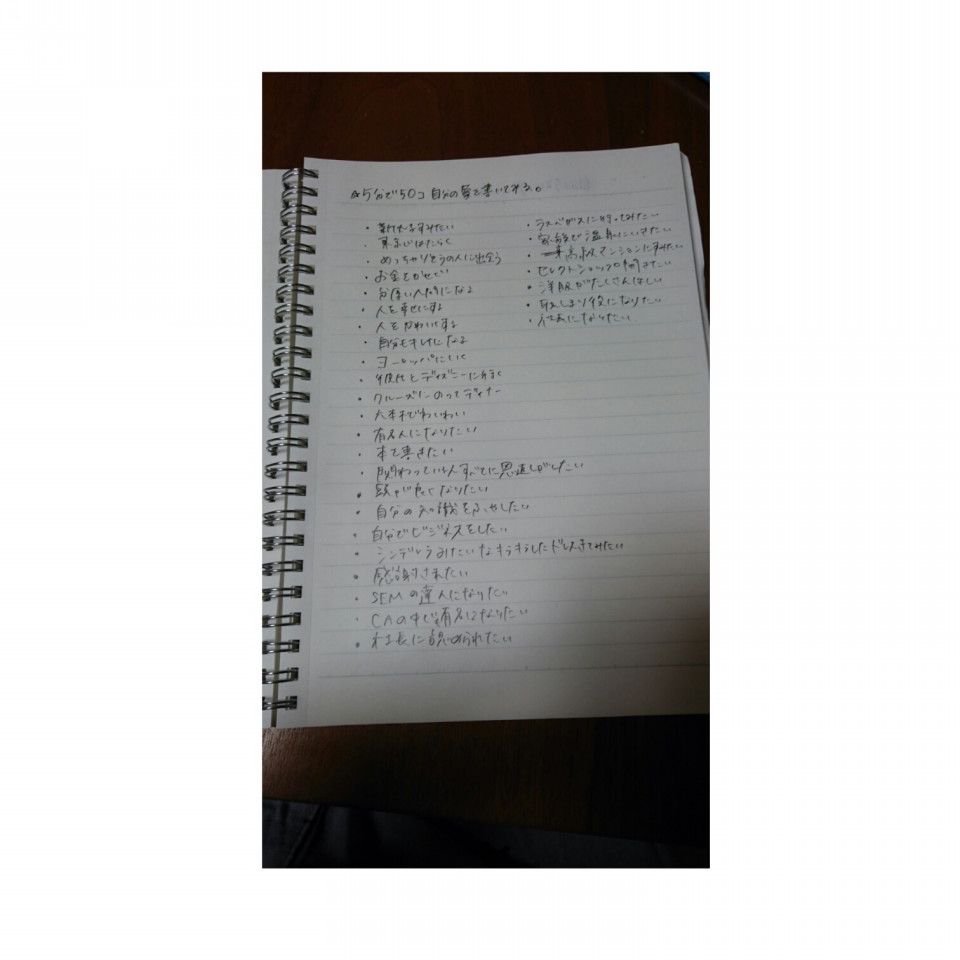 ☆5分で50コ 自分の夢を書いてみる。
・東京ではたらく
・めっちゃりそうの人に出会う
・お金をかせぐ
・人を幸せにする
・人をかわいくする
・自分もキレイになる
・ヨーロッパにいく
・彼氏とディズニーに行く
・クルーズにのってディナー
・六本木でわいわい
・有名人になりたい
・本を書きたい
・関わっている人すべてに恩返しがしたい
・頭が良くなりたい
・自分の知識をふやしたい
・自分でビジネスをしたい
・シンデレラみたいなキラキラしたドレスきてみたい
・感謝されたい
・SEMの達人になりたい
・CAの中で有名になりたい
・社長に認められたい
・ラスベガスに行ってみたい
・家族で温泉にいきたい
・高級マンションにすみたい
・セレクトショップ開きたい
・洋服がたくさんほしい
・取しまり役になりたい
・社長になりたい